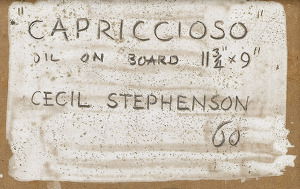 "CAPRICCIOSO"
OIL ON BOARD 11 3/4" × 9"
CECIL STEPHENSON
60